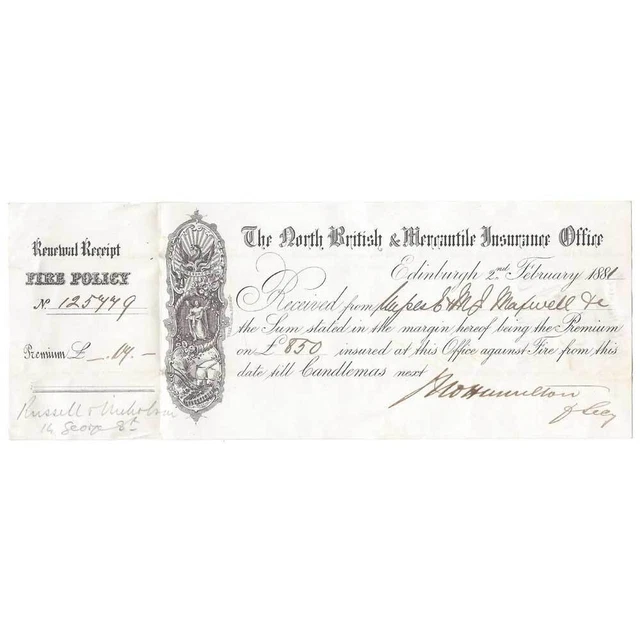 Renewal Receipt
FIRE POLICY
No. 125779
Premium £ _ . 17 . -
Russell & Nicholson
14 George St
The North British & Mercantile Insurance Office
Edinburgh 2nd February 1881
Received from E M J Maxwell &c
the Sum stated in the margin hereof being the Premium
on £850 insured at this Office against Fire from this
date till Candlemas next
Hamilton